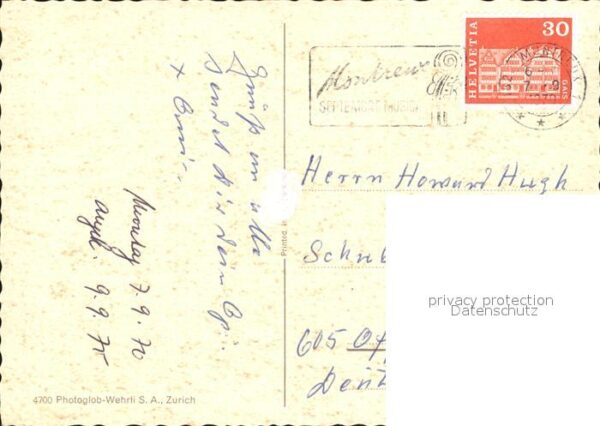 Gruß an alle
sendet dir dein Opi
+ Omi
Monday 7.9.70
angek. 9.9.70
4700 Photoglob-Wehrli S. A., Zürich
Printed in
Montreux
SEPTEMBRE MUSICAL
HELVETIA
30
GAIS
Herrn Howard Hugh
Schub
605 Of
privacy protection
Datenschutz